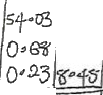 54.03
0.68
0.23 8.45